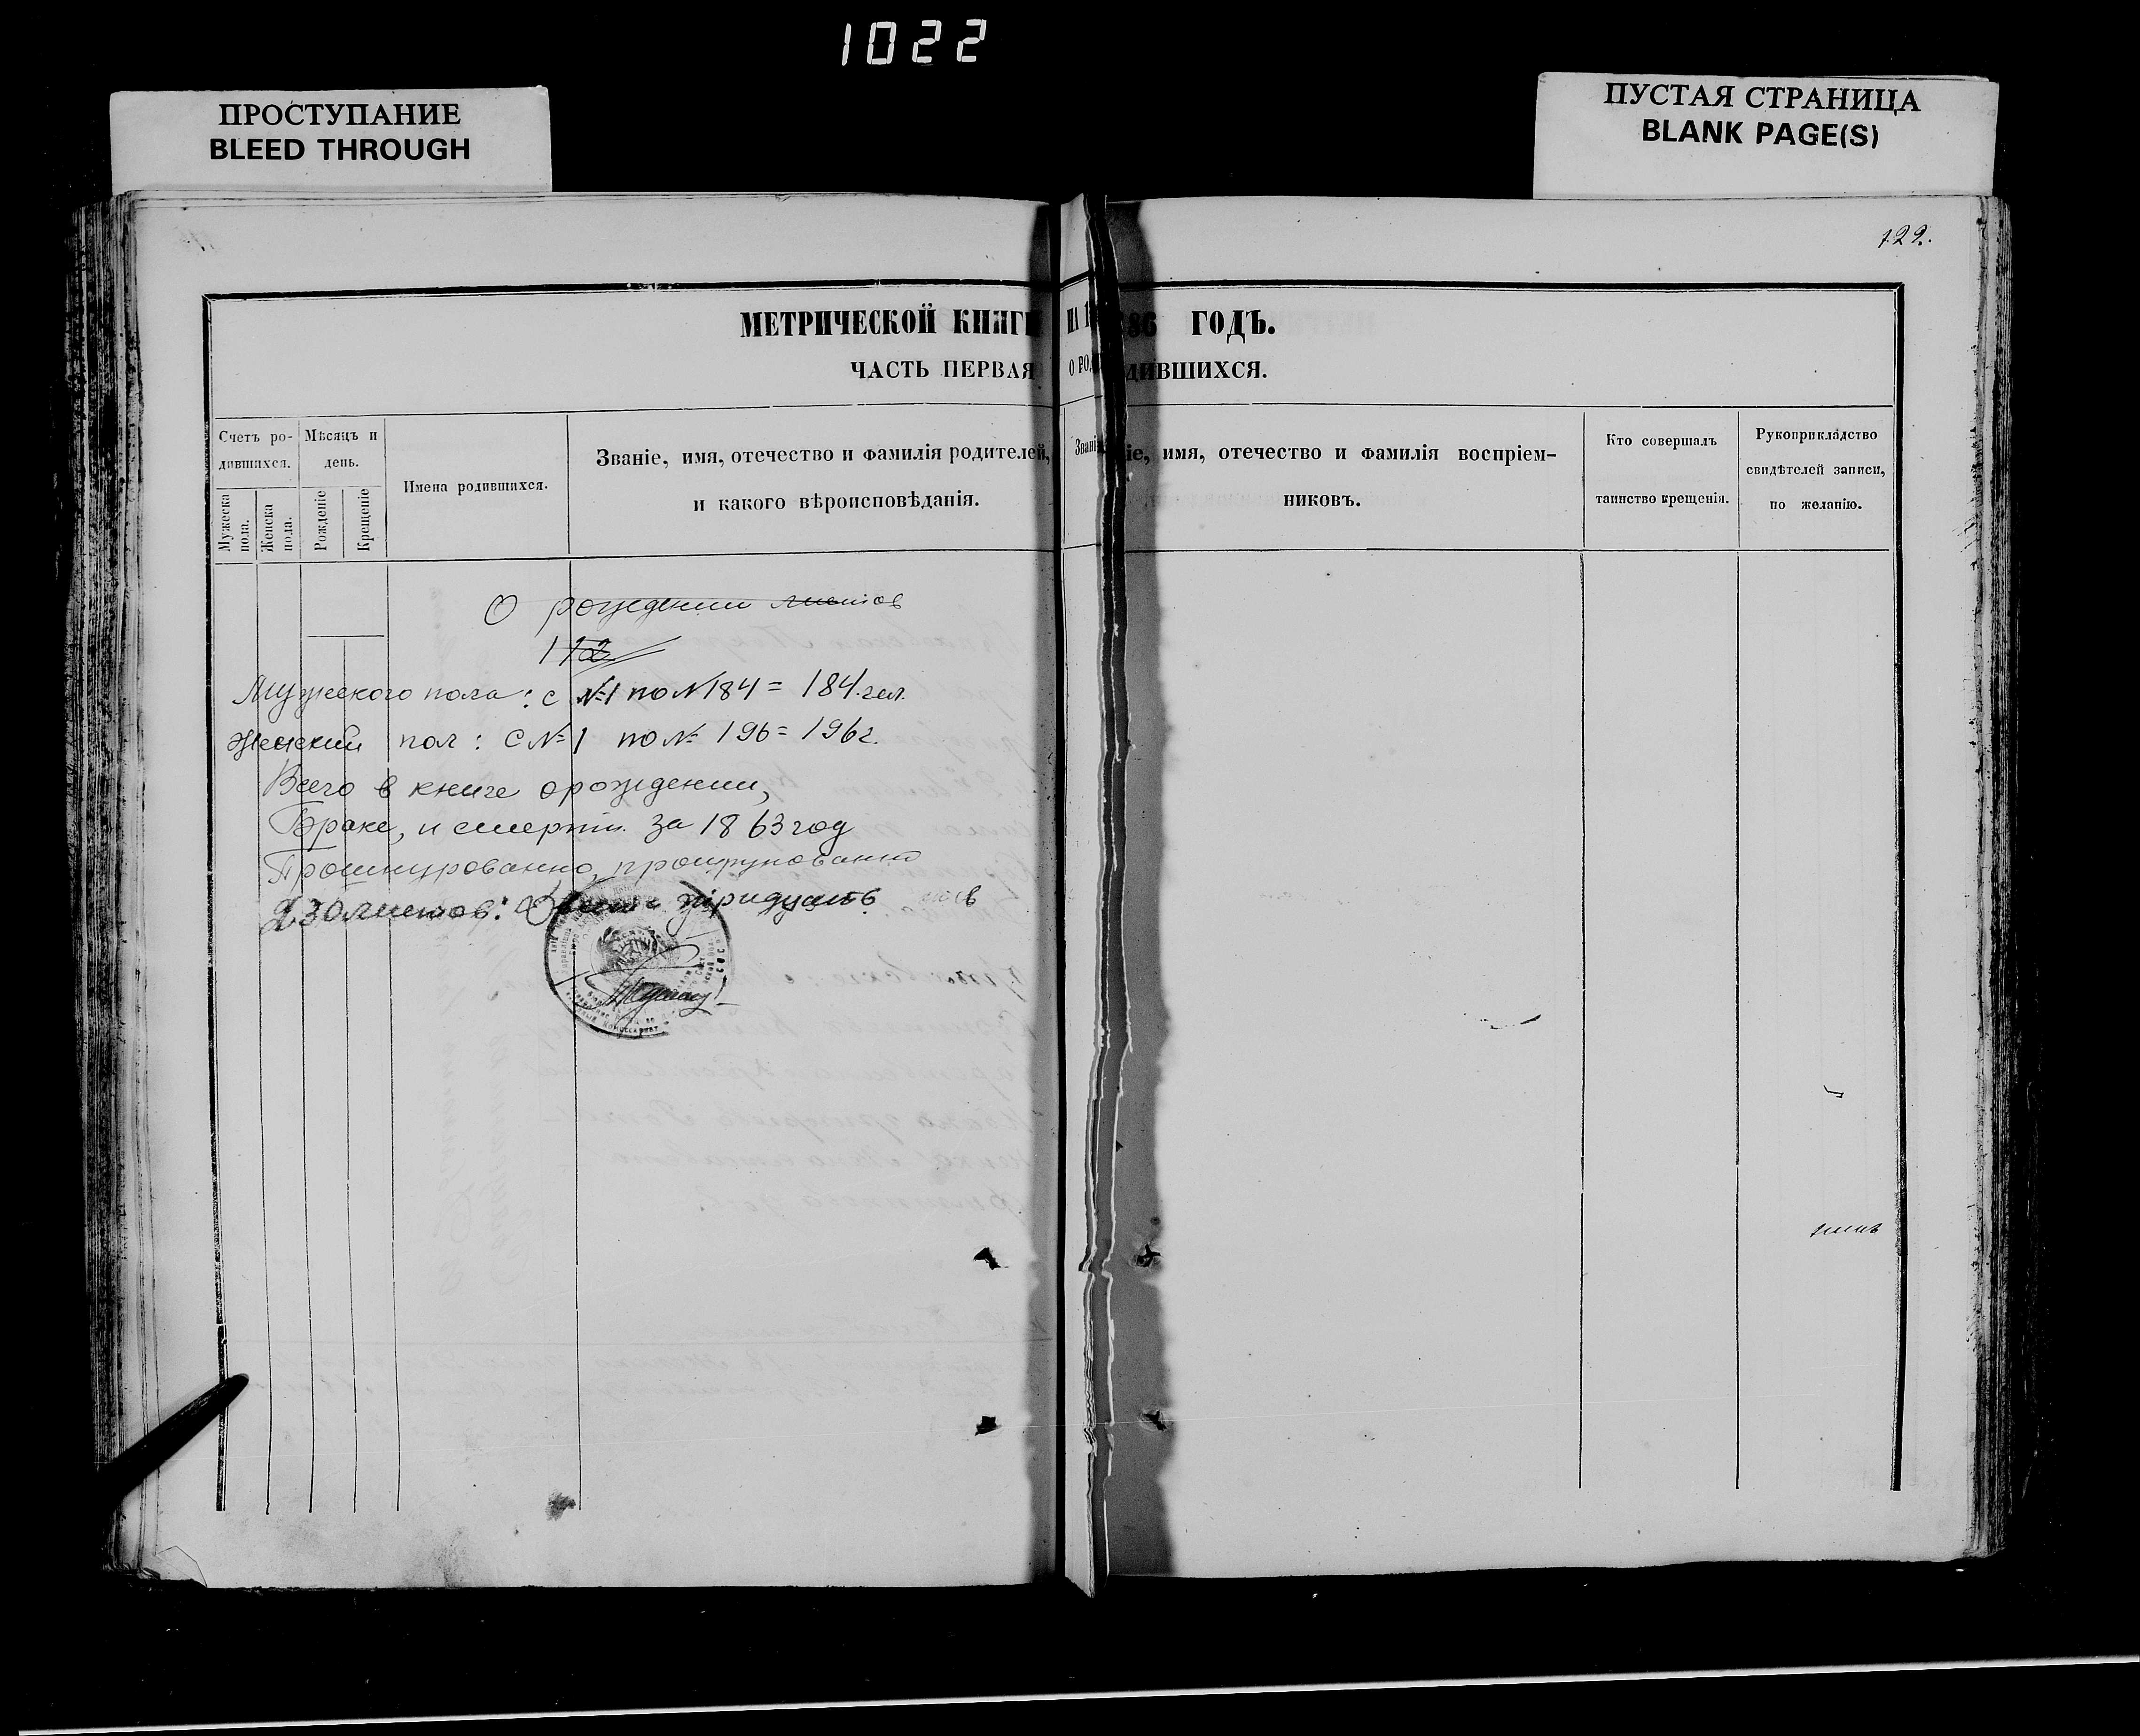 1022
ПРОСТУПАНИЕ
BLEED THROUGH
ПУСТАЯ СТРАНИЦА
BLANK PAGE(S)
122.
МЕТРИЧЕСКОЙ КНИГИ НА 186 ГОДЪ.
ЧАСТЬ ПЕРВАЯ О РОДИВШИХСЯ.
Счетъ ро-
дившихся.
Мужеска
пола.
Женска
пола.
Мѣсяцъ и
день.
Рожденіе
Крещеніе
Имена родившихся.
Званіе, имя, отечество и фамилія родителей,
и какого вѣроисповѣданія.
Званіе, имя, отечество и фамилія воспріем-
никовъ.
Кто совершалъ
таинство крещенія.
Рукоприкладство
свидѣтелей записи,
по желанію.
О рождении листов
Мужеского пола: с №1 по №184 = 184 чел.
Женский пол: с №1 по № 196 = 196 г.
Всего в книге о рождении,
Браке, и смерти за 1863 год
Прошнуровано, пронумеровано
230 листов: Двести тридцать